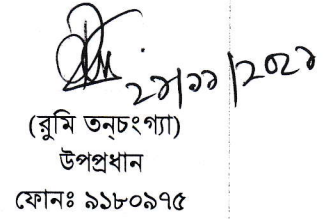 ২১/১১/২০২১
(রুমি তন্‌চংগ্যা)
উপপ্রধান
ফোনঃ ৯১৮০৯৭৫